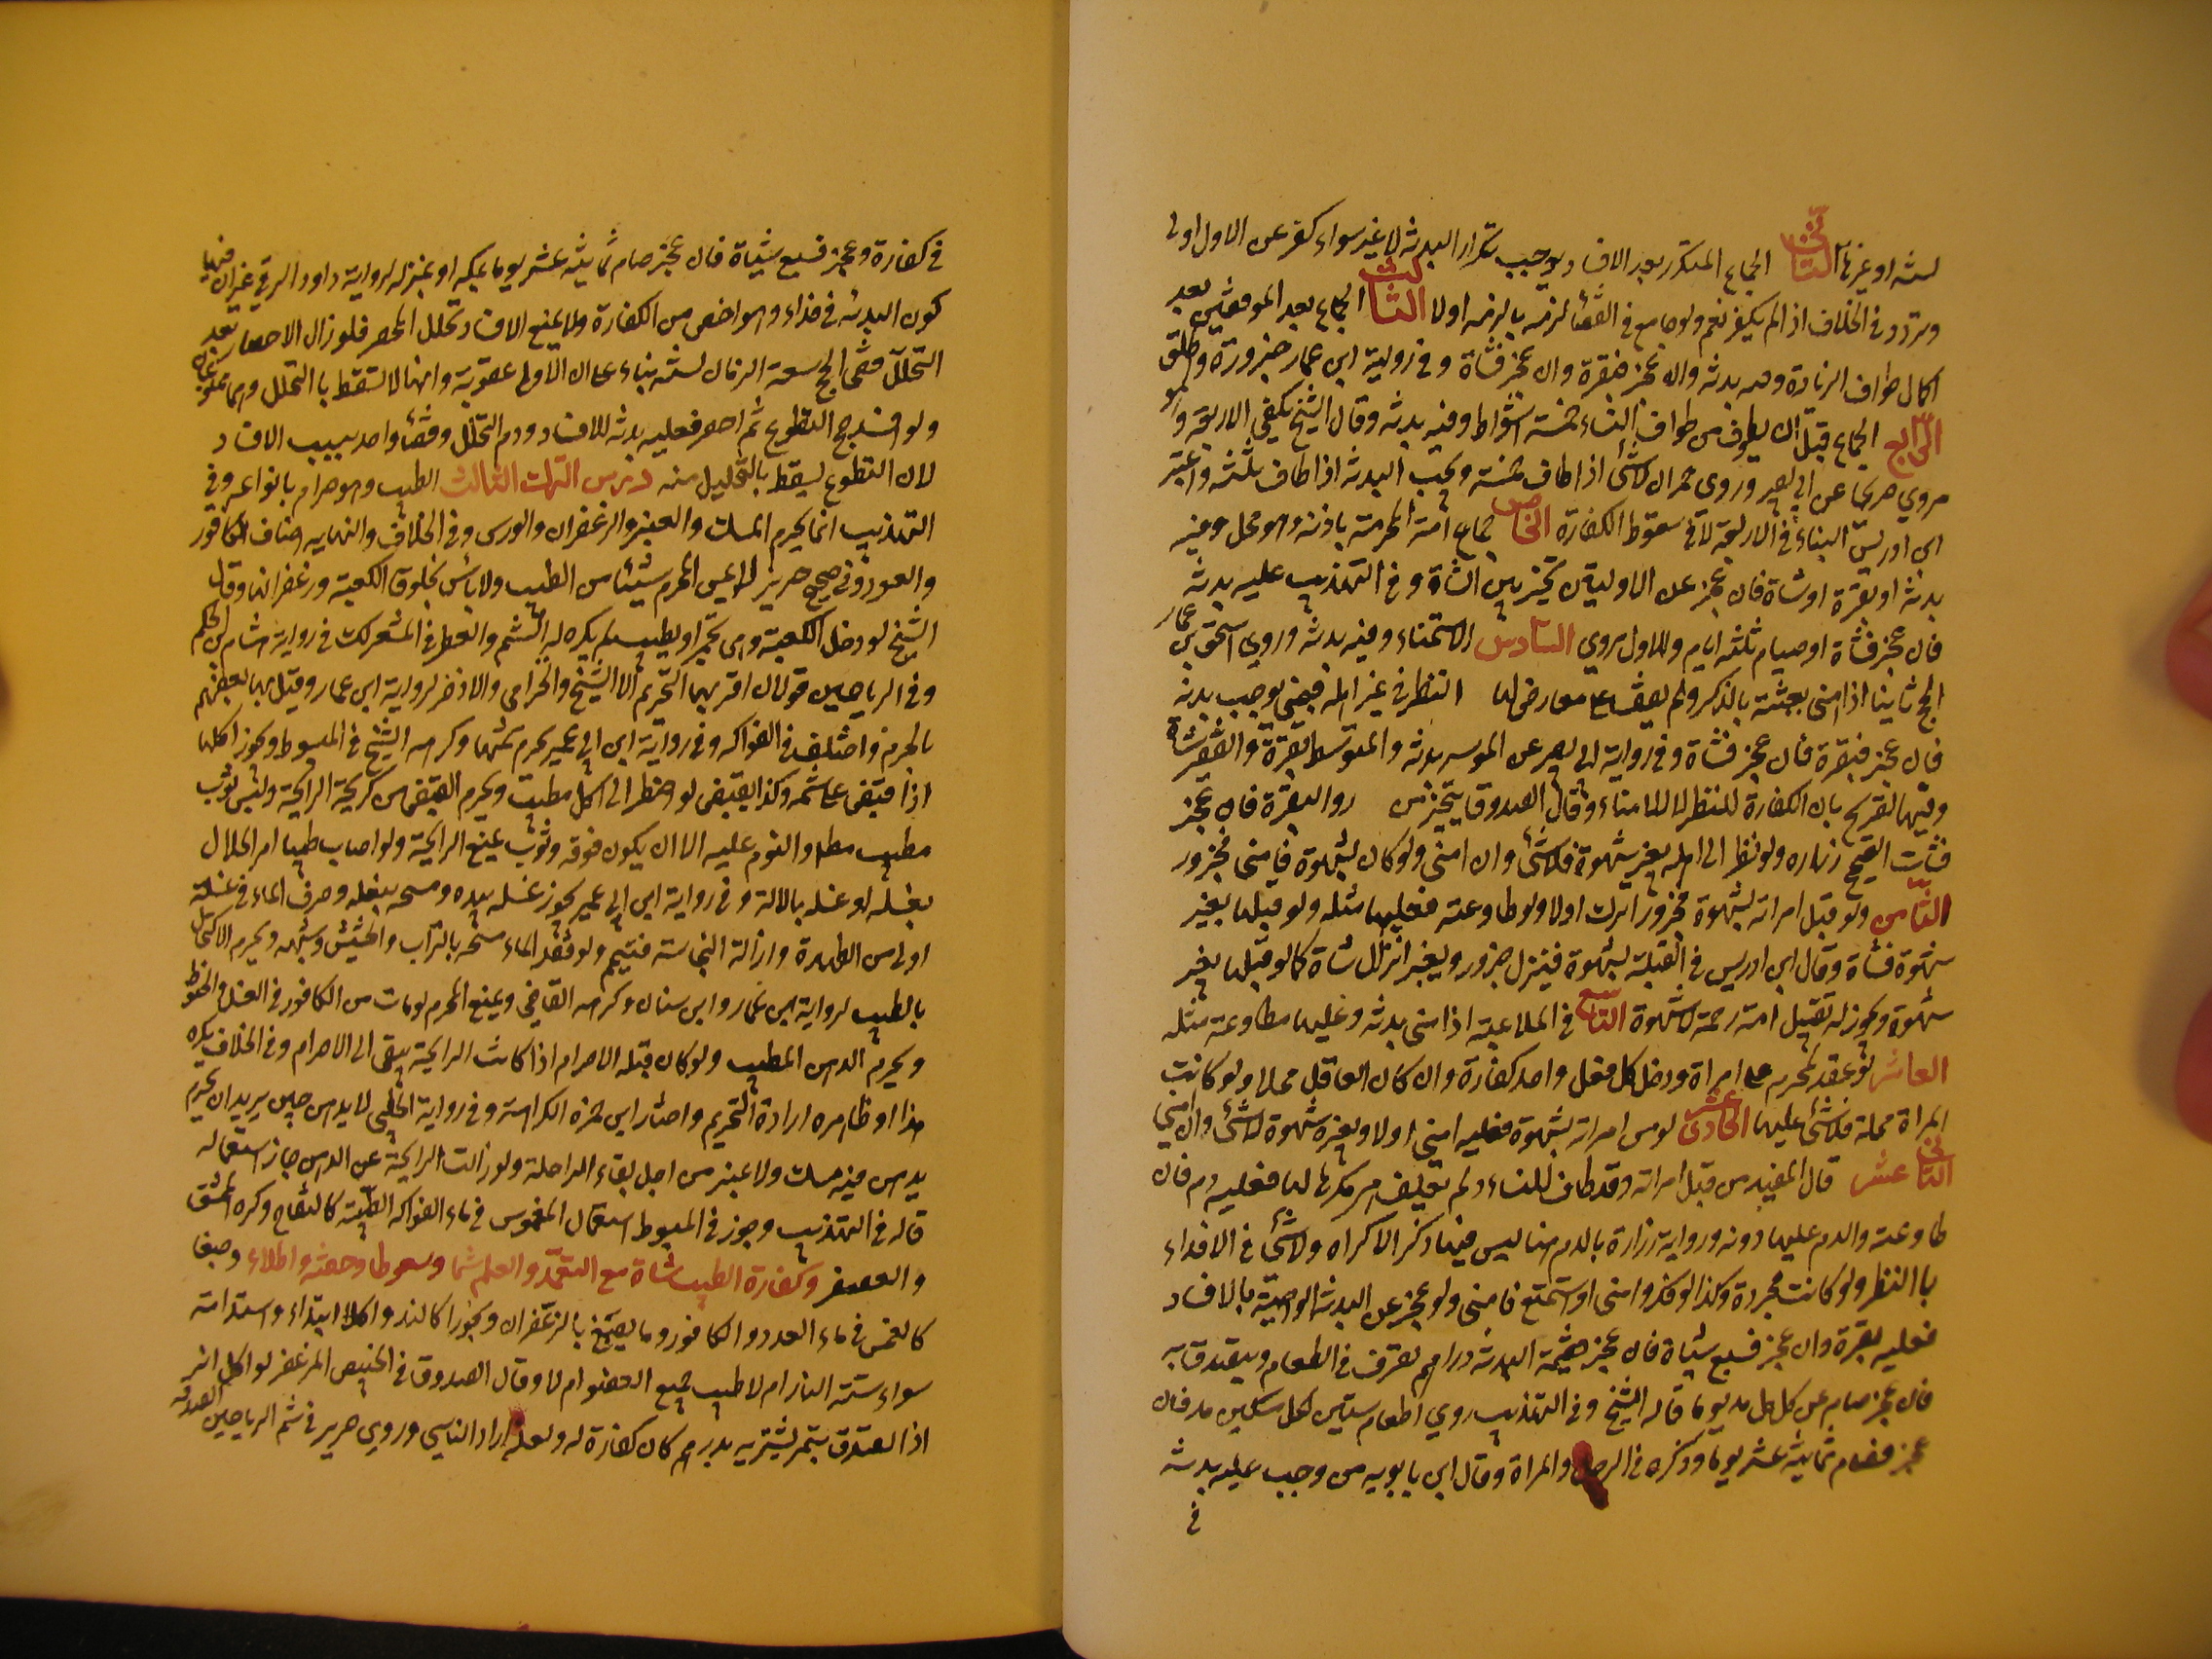 لسنته او غيرها الثاني الجماع المتكرر بعد الافساد يوجب تكرار البدنة لا غير سواء كفر عن الاول اولا
وتردد في الخلاف اذا لم يكفر نعم ولو جامع في القضأ لزمه ما لزمه اولا الثالث الجماع بعد الموقفين بعد
اكمال طواف الزيادة وفيه بدنة وان عجز فبقرة وان عجز فشاة وفي رواية ابن عمار جزورة واطلق
الرابع الجماع قبل ان يطوف من طواف النساء خمسة اشواط وفيه بدنة وقال الشيخ يكفي الاربعة وهو
مروي صريحا عن ابي بصير وروى حمران لاشئ اذا طاف خمسة ويجب البدنة اذا طاف ثلثة واعتبر
ابن ادريس البناء في الاربعة لا في سقوط الكفارة الخامس جماع امته المحرمة باذنه وهو محل وفيه
بدنة او بقرة او شاة فان عجز عن الاوليين تخير بين الشاة وفي التهذيب عليه بدنة
فان عجز فشاة او صيام ثلثة ايام والاول مروي السادس الاستمناء وفيه بدنة وروى اسحق بن عمار
الحج ثانيا اذا امنى بعبثه بالذكر ولم نقف على معارض لها النظر في غير اهله فيمني يوجب بدنة
فان عجز فبقرة فان عجز فشاة وفي رواية ابي بصير عن الموسر بدنة والمتوسط بقرة والفقير شاة
وفيها تصريح بان الكفارة للنظر لا للامناء وقال الصدوق يتخير من والبقرة فان عجز
فشاة زرارة ولو نظر الى اهله بغير شهوة فلاشئ وان امنى ولو كان بشهوة فامنى فجزور
الثامن ولو قبل امراته بشهوة فجزور انزل اولا ولو طاوعته فعليها مثله ولو قبلها بغير
شهوة فشاة وقال ابن ادريس في القبلة بشهوة فينزل جزور وبغير انزال شاة كما لو قبلها بغير
شهوة ويجوز له تقبيل امه رحمة لاشهوة التاسع في الملاعبة اذا امنى بدنة وعليها مطاوعة مثله
العاشر لو عقد لمحرم على امراة ودخل كل فعلى واحد كفارة وان كان العاقد محلا ولو كانت
المراة محلة فلاشئ عليها الحادى عشر لو مس امراته بشهوة فعليه امنى اولا وبغير شهوة لاشئ وان امنى
الثانى عشر قال المفيد من قبل امراته وقد طاف للنساء ولم تطف مكرها لها فعليه دم فان
طاوعته والدم عليها دونه ورواية زرارة بالدم هنا ليس فيها ذكر الاكراه ولاشئ في الافداء
باالنظر ولو كانت مجردة وكذا لو فكر وامنى او استمتع فامنى ولو عجز عن البدنة الواجبة بالافساد
فعليه بقرة وان عجز فسبع شياة فان عجز فقيمة البدنة دراهم تصرف في الطعام ويتصدق به
فان عجز صام عن كل مد يوما قاله الشيخ وفي التهذيب روي اطعام ستين لكل مسكين مد فان
عجز فصام ثمانية عشر يوما وذكره في الرجل والمراة وقال ابن بابويه من وجب عليه بدنة
في
في كفارة وعجز فسبع شياة فان عجز صام ثمانية عشر يوما بمكة او بمنزله لرواية داود الرقي غير ان فيها
كون البدنة في فداء وهو اخص من الكفارة ولا يمنع الافساد تحلل المحصر فلو زال الاحصار بعد
التحلل قضى الحج سعة الزمان لسنته بناء على ان الاولى عقوبة وانها لا تسقط باالتحلل وهما ممنوعان
ولو افسد حج التطوع ثم احصر فعليه بدنة للافساد ودم التحلل وقضأ واحد بسبب الافساد
لان التطوع يسقط بالتحليل منه درس الترك الثالث الطيب وهو حرام بانواعه وفي
التهذيب انما يحرم المسك والعنبر والزعفران والورس وفي الخلاف والنهاية اضاف الكافور
والعود وفي صحيح حريز لا يمس المحرم شيئا من الطيب ولاباس بخلوق الكعبة وزعفرانه وقال
الشيخ لو دخل الكعبة وهي تجمر او تطيب لم يكره له الشم والعطر في المشعر لك في رواية هشام بن الحكم
وفي الرياحين قولان اقربهما التحريم الا الشيخ والخزامى والاذخر لرواية ابن عمار وقيل بها بعضهم
بالحرم واختلف في الفواكه وفي رواية ابن ابي عمير يحرم شمها وكرهه الشيخ في المبسوط ويجوز اكلها
اذا قبض على شمه وكذا يقبض لو اضطر الى اكل مطيب ويحرم القبض من كريه الرايحة ولبس ثوب
مطيب مطلقا والنوم عليه الا ان يكون فوقه ثوب يمنع الرايحة ولو اصاب طيبا امر الحلال
بغسله او غسله بالالة وفي رواية ابن ابي عمير يجوز غسله بيده ومسحه بنعله وصرف الماء في غسله
اولى من الطهارة وازالة النجاسة فتيمم ولو فقد الماء مسحه بالتراب والحشيش وشبهه ويحرم الاكتحال
بالطيب لرواية ابن عمار وابن سنان وكرهه القاضي ويمنع المحرم لو مات من الكافور في الغسل والحنوط
ويحرم الدهن المطيب ولو كان قبله الاحرام اذا كانت الرايحة يبقى الى الاحرام وفي الخلاف يكره
هذا او ظاهره ارادة التحريم واختار ابن حمزة الكراهة وفي رواية الحلبي لا يدهن حين يريد ان يحرم
بدهن فيه مسك ولا عنبر من اجل بقاء الراحلة ولو زالت الرايحة عن الدهن جاز استعماله
قاله في التهذيب وجوز في المبسوط استعمال المغموس في ماء الفواكه الطيبة كالتفاح وكره الممشق
والمعصفر وكفارة الطيب شاة مع التعمد والعلم شما وسعوطا وحقنة واطلاء وصبغا
كالغمس في ماء الورد والكافور وما يصبغ بالزعفران وبخورا كالند واكلا ابتداء واستدامة
سواء مسته النار ام لا طيب جميع العضو ام لا وقال الصدوق في الخبيص المزعفر لو اكل اثر
اذا تصدق بتمر يشتريه بدرهم كان كفارة له ولعله اراد الناسي وروي حريز في شم الرياحين الصدقة